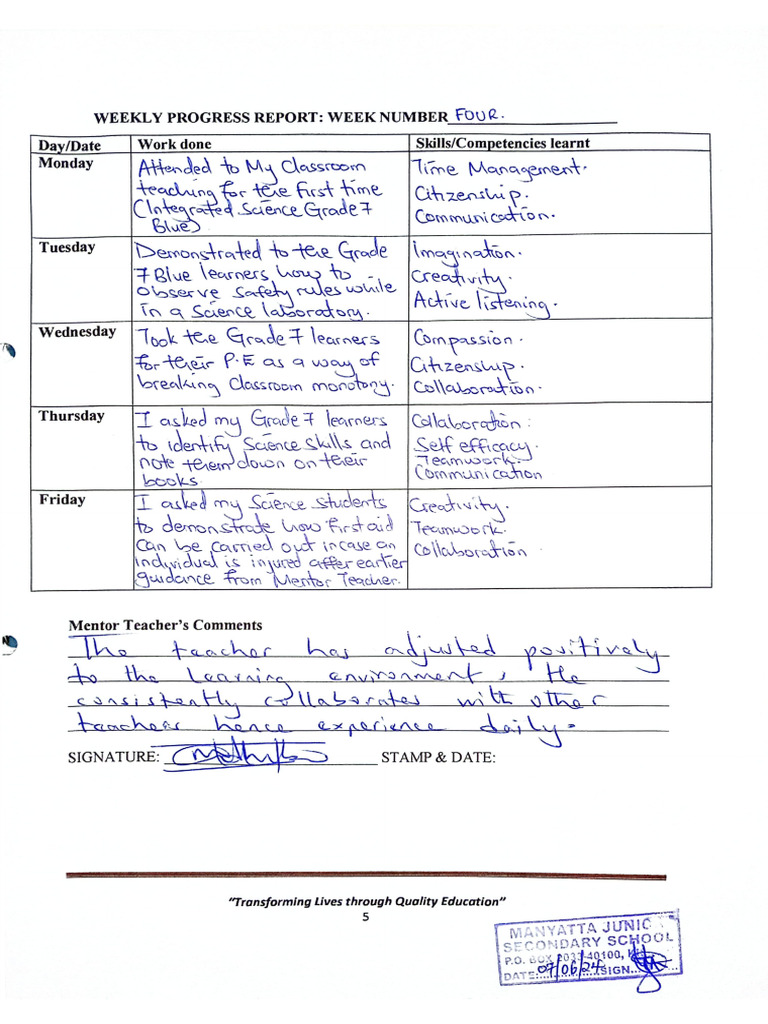 WEEKLY PROGRESS REPORT: WEEK NUMBER FOUR.
Day/Date Work done Skills/Competencies learnt
Monday
Attended to My Classroom
teaching for the first time
(Integrated Science Grade 7
Blue)
Time Management.
Citizenship.
Communication.
Tuesday
Demonstrated to the Grade
7 Blue learners how to
observe safety rules while
in a Science laboratory.
Imagination.
Creativity.
Active listening.
Wednesday
Took the Grade 7 learners
for their P.E as a way of
breaking Classroom monotony.
Compassion.
Citizenship.
Collaboration.
Thursday
I asked my Grade 7 learners
to identify Science skills and
note them down on their
books.
Collaboration.
Self efficacy.
Teamwork.
Communication
Friday
I asked my Science students
to demonstrate how first aid
Can be carried out incase an
individual is injured after earlier
guidance from Mentor Teacher.
Creativity.
Teamwork.
Collaboration
Mentor Teacher's Comments
The teacher has adjusted positively
to the learning environment, He
consistently collaborates with other
teachers hence experience daily.
SIGNATURE: STAMP & DATE:
"Transforming Lives through Quality Education"
5
MANYATTA JUNIO
SECONDARY SCHOOL
P.O. BOX 2033-40100,
DATE: 07/06/24 SIGN